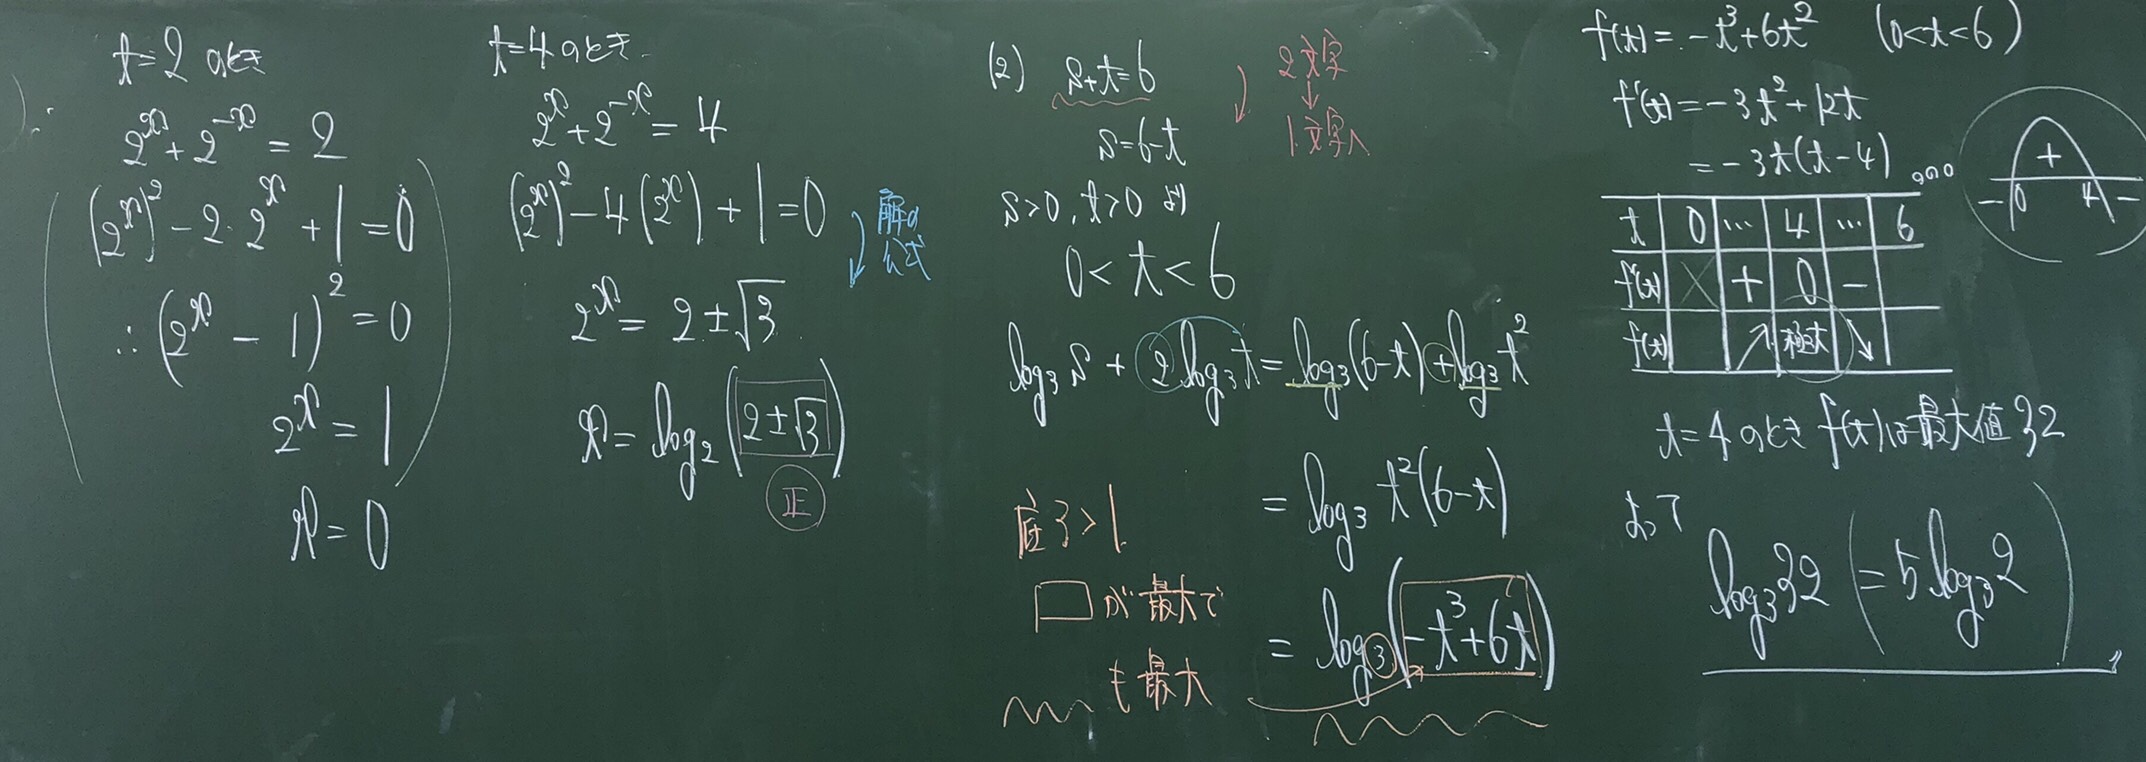 t=2 のとき
2^x + 2^{-x} = 2
(2^x)^2 - 2・2^x + 1 = 0
∴ (2^x - 1)^2 = 0
2^x = 1
x = 0
t=4 のとき
2^x + 2^{-x} = 4
(2^x)^2 - 4(2^x) + 1 = 0
解の
公式
2^x = 2±√3
x = log_2(2±√3)
正
(2) s+t=6
2文字
↓
1文字へ
s=6-t
s>0, t>0 より
0 < t < 6
log_3 s + 2log_3 t = log_3(6-t) + log_3 t^2
= log_3 t^2(6-t)
= log_3(-t^3+6t)
底3>1
□が最大で
も最大
f(t) = -t^3+6t^2 (0<t<6)
f'(t) = -3t^2+12t
= -3t(t-4)
+
- 0 4 -
t 0 … 4 … 6
f'(t) × + 0 -
f(t) ↗ 極大 ↘
t=4 のとき f(t)は最大値32
よって
log_3 32 (=5log_3 2)